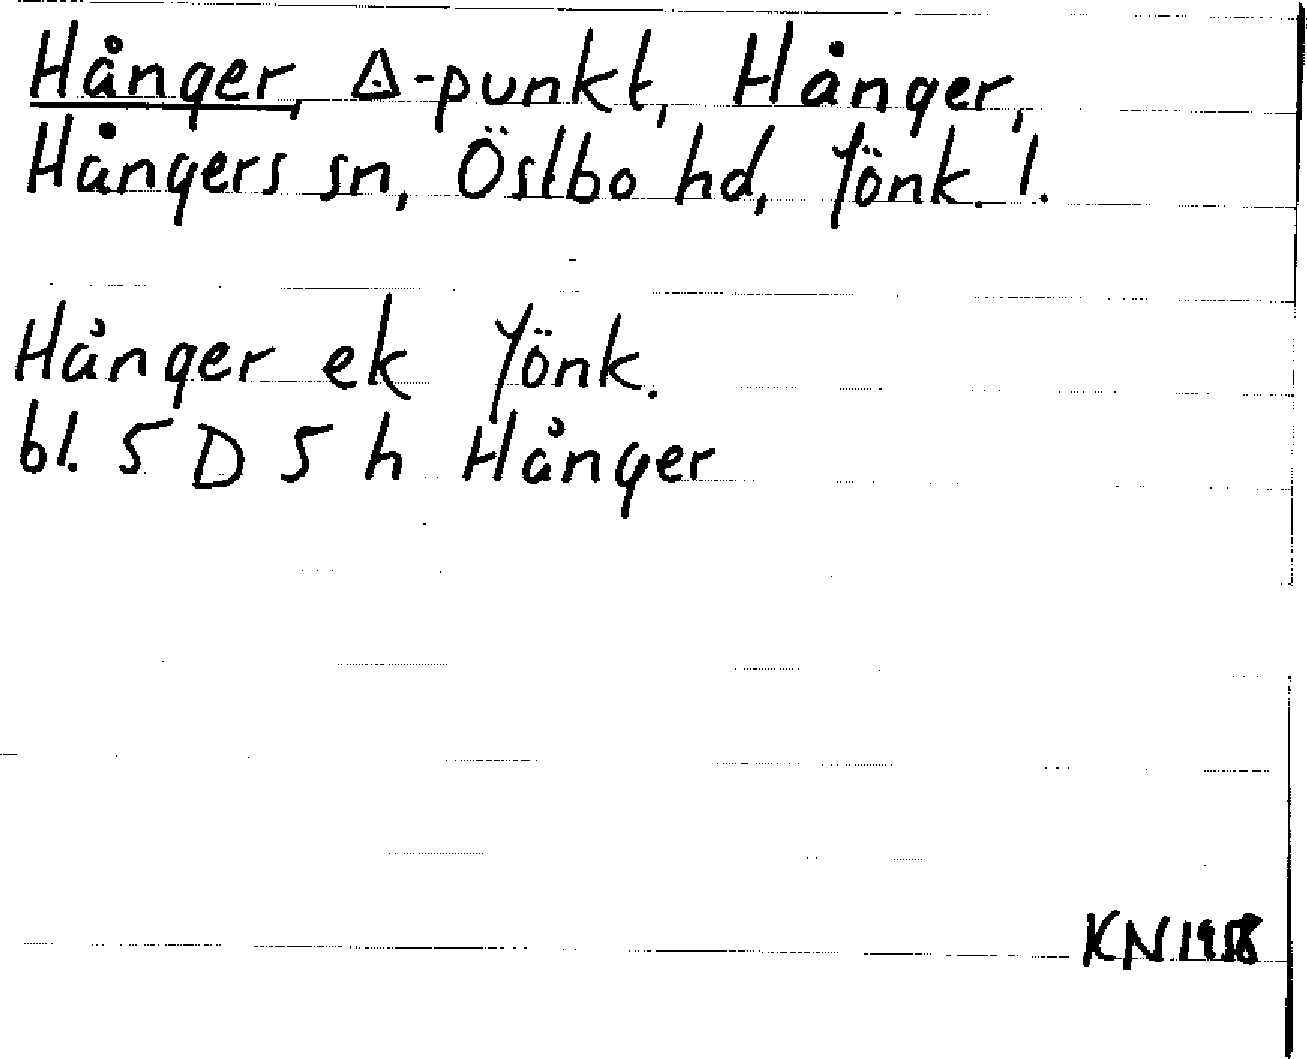 Hånger, △-punkt, Hånger,
Hångers sn, Östbo hd, Jönk. l.
Hånger ek Jönk.
bl. 5 D 5 h Hånger
KN 1958